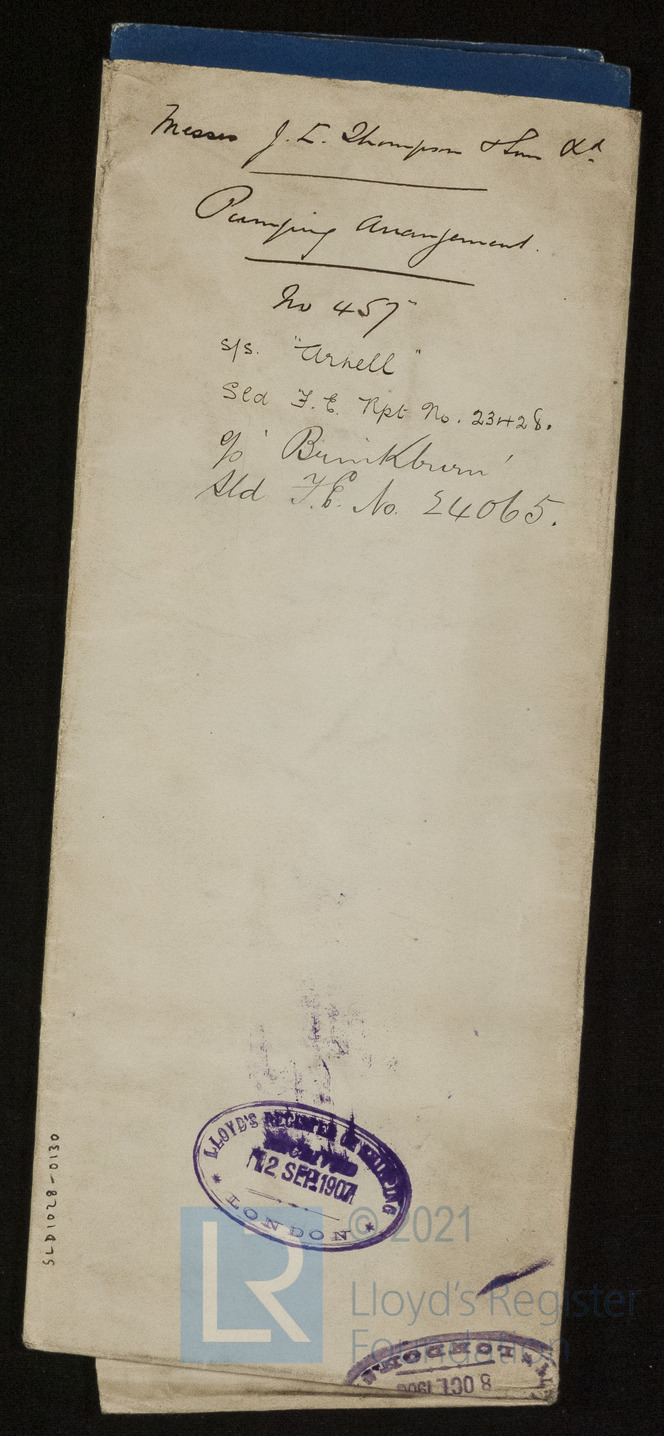 Messrs J. L. Thompson & Sons Ld.
Pumping Arrangement.
No 457
s/s. "Arnell"
Sld F. E. Rpt No. 23428.
g/o 'Brinkburn'
Sld F.E. No. 24065.
LLOYD'S REGISTER OF SHIPPING
12 SEP. 1907
LONDON
SLD1028-0130
© 2021
LR
Lloyd's Register
Foundation
LONDON
8 OCT 190